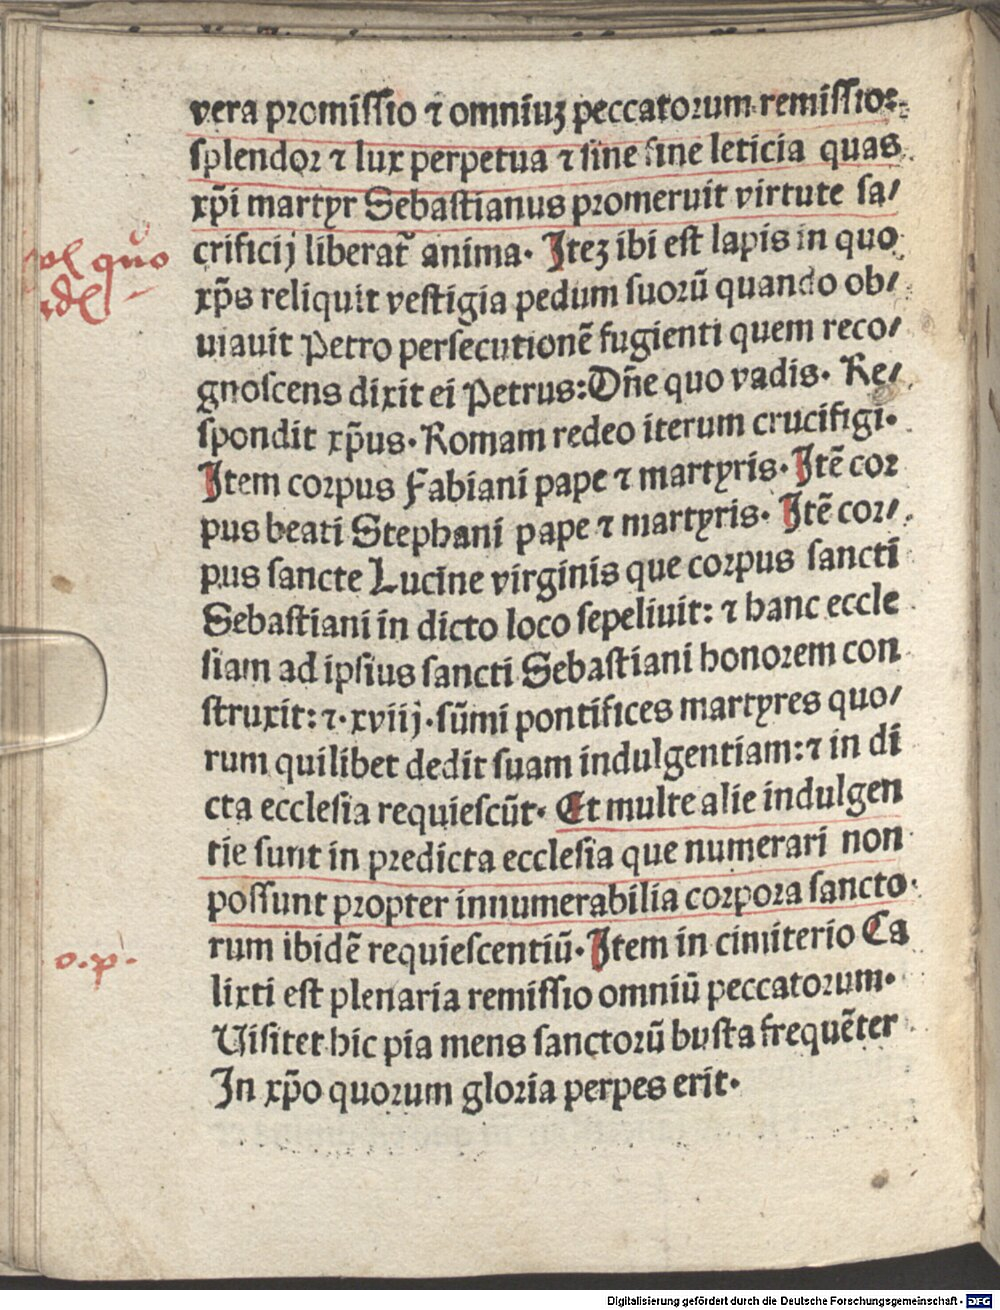 vera promissio ⁊ omniuꝫ peccatorum remissio:
splendor ⁊ lux perpetua ⁊ sine fine leticia quas
xp̄i martyr Sebastianus promeruit virtute sa/
crificij liberat̄ anima. Iteꝫ ibi est lapis in quo
xp̄s reliquit vestigia pedum suorū quando ob/
uiauit Petro persecutionē fugienti quem reco/
gnoscens dixit ei Petrus: Dn̄e quo vadis. Re/
spondit xp̄us. Romam redeo iterum crucifigi.
Item corpus Fabiani pape ⁊ martyris. Itē cor
pus beati Stephani pape ⁊ martyris. Itē cor/
pus sancte Lucine virginis que corpus sancti
Sebastiani in dicto loco sepeliuit: ⁊ hanc eccle
siam ad ipsius sancti Sebastiani honorem con
struxit: ⁊. xviij. sūmi pontifices martyres quo/
rum quilibet dedit suam indulgentiam: ⁊ in di
cta ecclesia requiescūt. Et multe alie indulgen
tie sunt in predicta ecclesia que numerari non
possunt propter innumerabilia corpora sancto
rum ibidē requiescentiū. Item in cimiterio Ca
lixti est plenaria remissio omniū peccatorum.
Uisitet hic pia mens sanctorū busta frequēter
In xp̄o quorum gloria perpes erit.
quo
o. p.
Digitalisierung gefördert durch die Deutsche Forschungsgemeinschaft - DFG